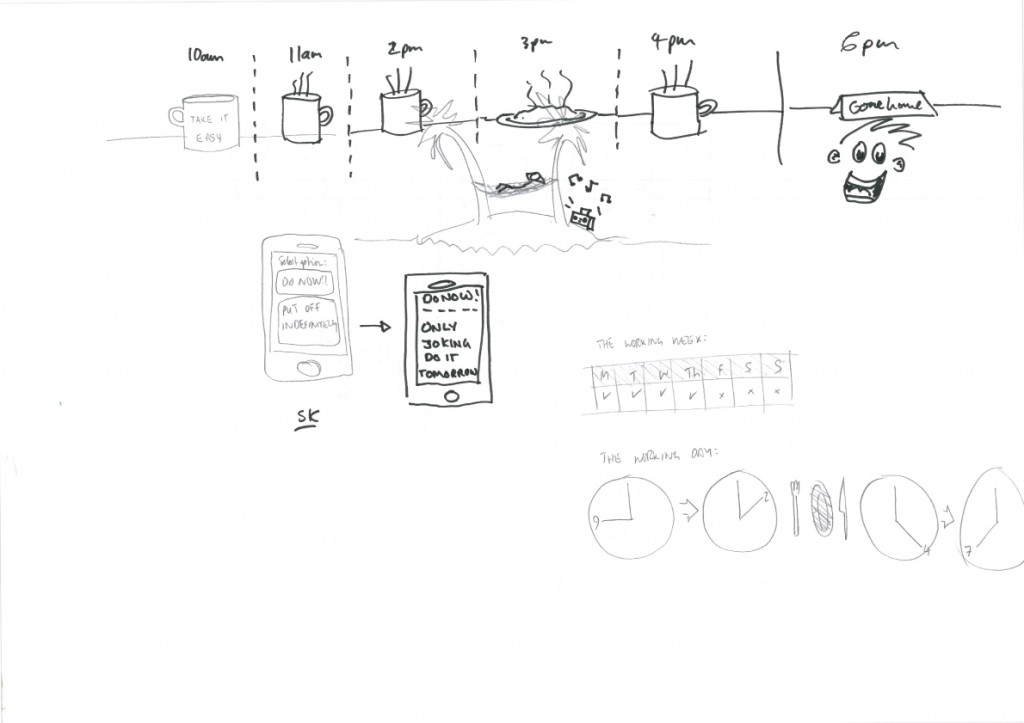 10am
11am
2pm
3pm
4pm
6pm
TAKE IT
EASY
Gone home
Select option:
DO NOW!!
PUT OFF
INDEFINITELY
DO NOW!
ONLY
JOKING
DO IT
TOMORROW
SK
THE WORKING WEEK:
M T W Th F S S
✓ ✓ ✓ ✓ x x x
THE WORKING DAY:
9
2
4
7